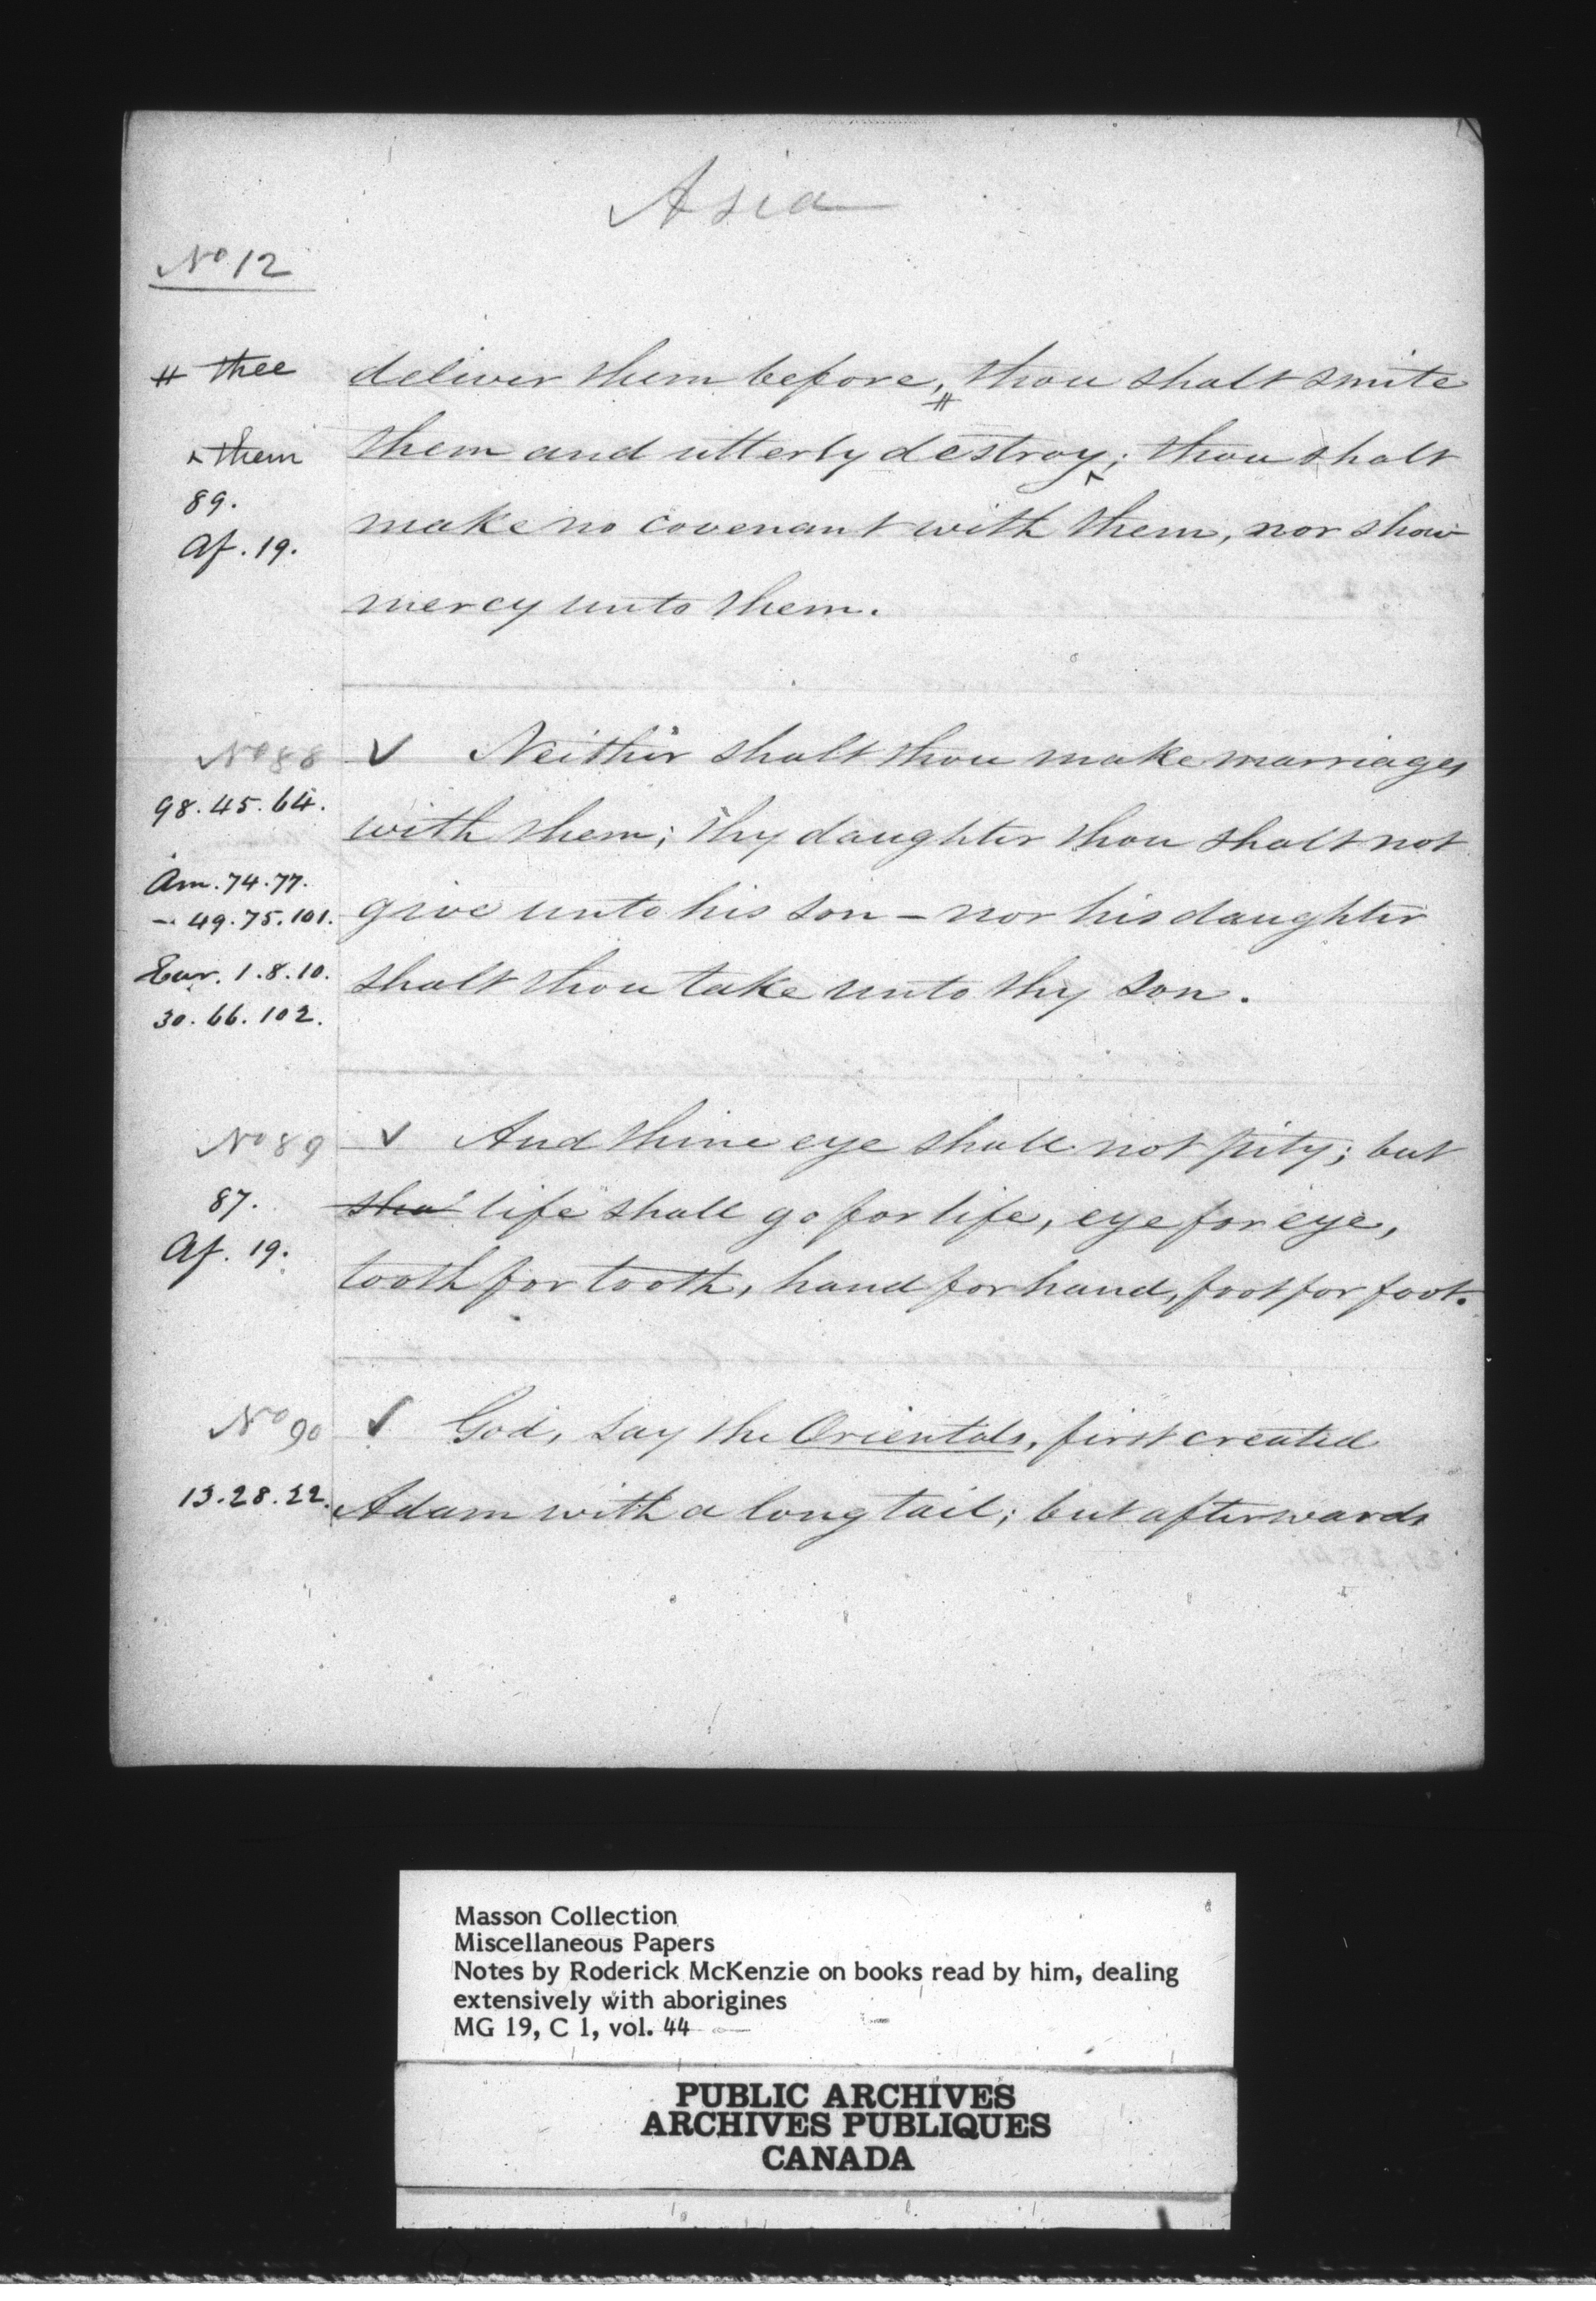 Asia
No 12
# thee deliver them before, # thou shalt smite
^ them them and utterly destroy ^; thou shalt
89.
make no covenant with them, nor show
Af. 19.
mercy unto them.
No 88 ✓ Neither shalt thou make marriages
98. 45. 64.
with them; thy daughter thou shalt not
Am. 74. 77.
give unto his son - nor his daughter
- 49. 75. 101.
Eur. 1. 8. 10.
shalt thou take unto thy son.
30. 66. 102.
No 89 ✓ And thine eye shall not pity; but
87.
shal life shall go for life, eye for eye,
Af. 19.
tooth for tooth, hand for hand, foot for foot.
No 90 ✓ God, say the Orientals, first created
13. 28. 22. Adam with a long tail; but afterwards
Masson Collection
Miscellaneous Papers
Notes by Roderick McKenzie on books read by him, dealing
extensively with aborigines
MG 19, C 1, vol. 44
PUBLIC ARCHIVES
ARCHIVES PUBLIQUES
CANADA